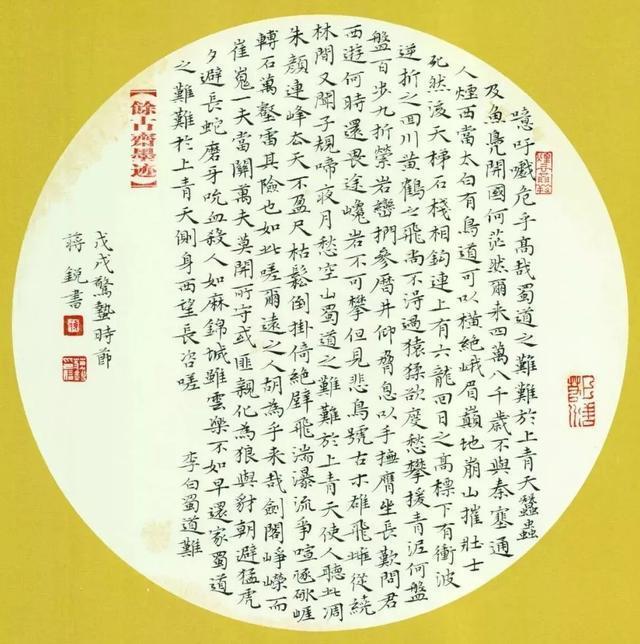 噫吁戲危乎髙哉蜀道之難難於上青天蠶蟲
及魚鳧開國何茫然爾來四萬八千歲不與秦塞通
人煙西當太白有鳥道可以橫絕峨眉巔地崩山摧壯士
死然後天梯石棧相鉤連上有六龍回日之高標下有衝波
逆折之回川黃鶴之飛尚不得過猿猱欲度愁攀援青泥何盤
盤百步九折縈岩巒捫參曆井仰脅息以手撫膺坐長歎問君
西遊何時還畏途巉岩不可攀但見悲鳥號古木雄飛雌從繞
林間又聞子規啼夜月愁空山蜀道之難難於上青天使人聽此凋
朱顏連峰去天不盈尺枯鬆倒掛倚絕壁飛湍瀑流爭喧豗砯崖
轉石萬壑雷其險也如此嗟爾遠之人胡為乎来哉劍閣崢嶸而
崔嵬一夫當關萬夫莫開所守或匪親化為狼與豺朝避猛虎
夕避長蛇磨牙吮血殺人如麻錦城雖雲樂不如早還家蜀道
之難難於上青天側身西望長咨嗟 李白蜀道難
【餘古齋墨迹】
戊戌驚蟄時節
蔣銳書